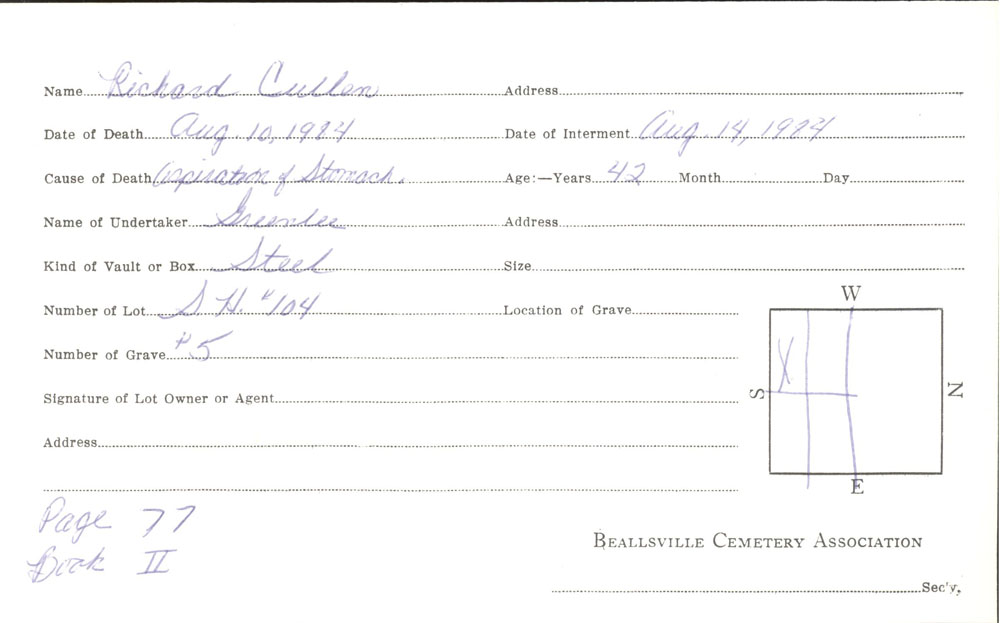 Name Richard Cullen Address
Date of Death Aug 10, 1984 Date of Interment Aug. 14, 1984
Cause of Death Aspiration of Stomach. Age:—Years 42 Month Day
Name of Undertaker Greenlee Address
Kind of Vault or Box Steel Size
Number of Lot S. H. #104 Location of Grave
Number of Grave #5
Signature of Lot Owner or Agent
Address
W
S X N
E
Page 77
Book II
BEALLSVILLE CEMETERY ASSOCIATION
Sec'y.